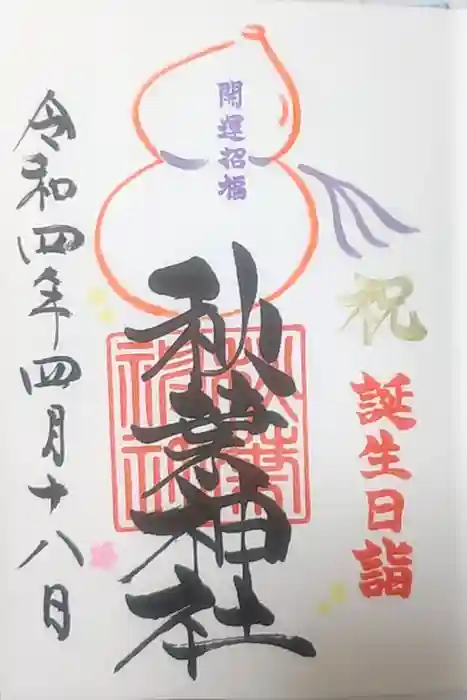 祝
誕生日詣
開運招福
秋葉神社
秋葉神社
令和四年四月十八日